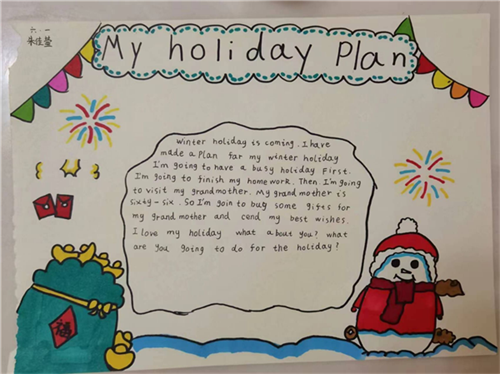 六.一
My holiday Plan
Winter holiday is coming. I have
made a Plan far my winter holiday
I'm going to have a busy holiday First.
I'm going to finish my homework. Then I'm going
to visit my grandmother. My grand mother is
sixty-six. So I'm goin to bug some gifts for
my grand mother and cend my best wishes.
I love my holiday what about you? what
are you going to do for the holiday?
福